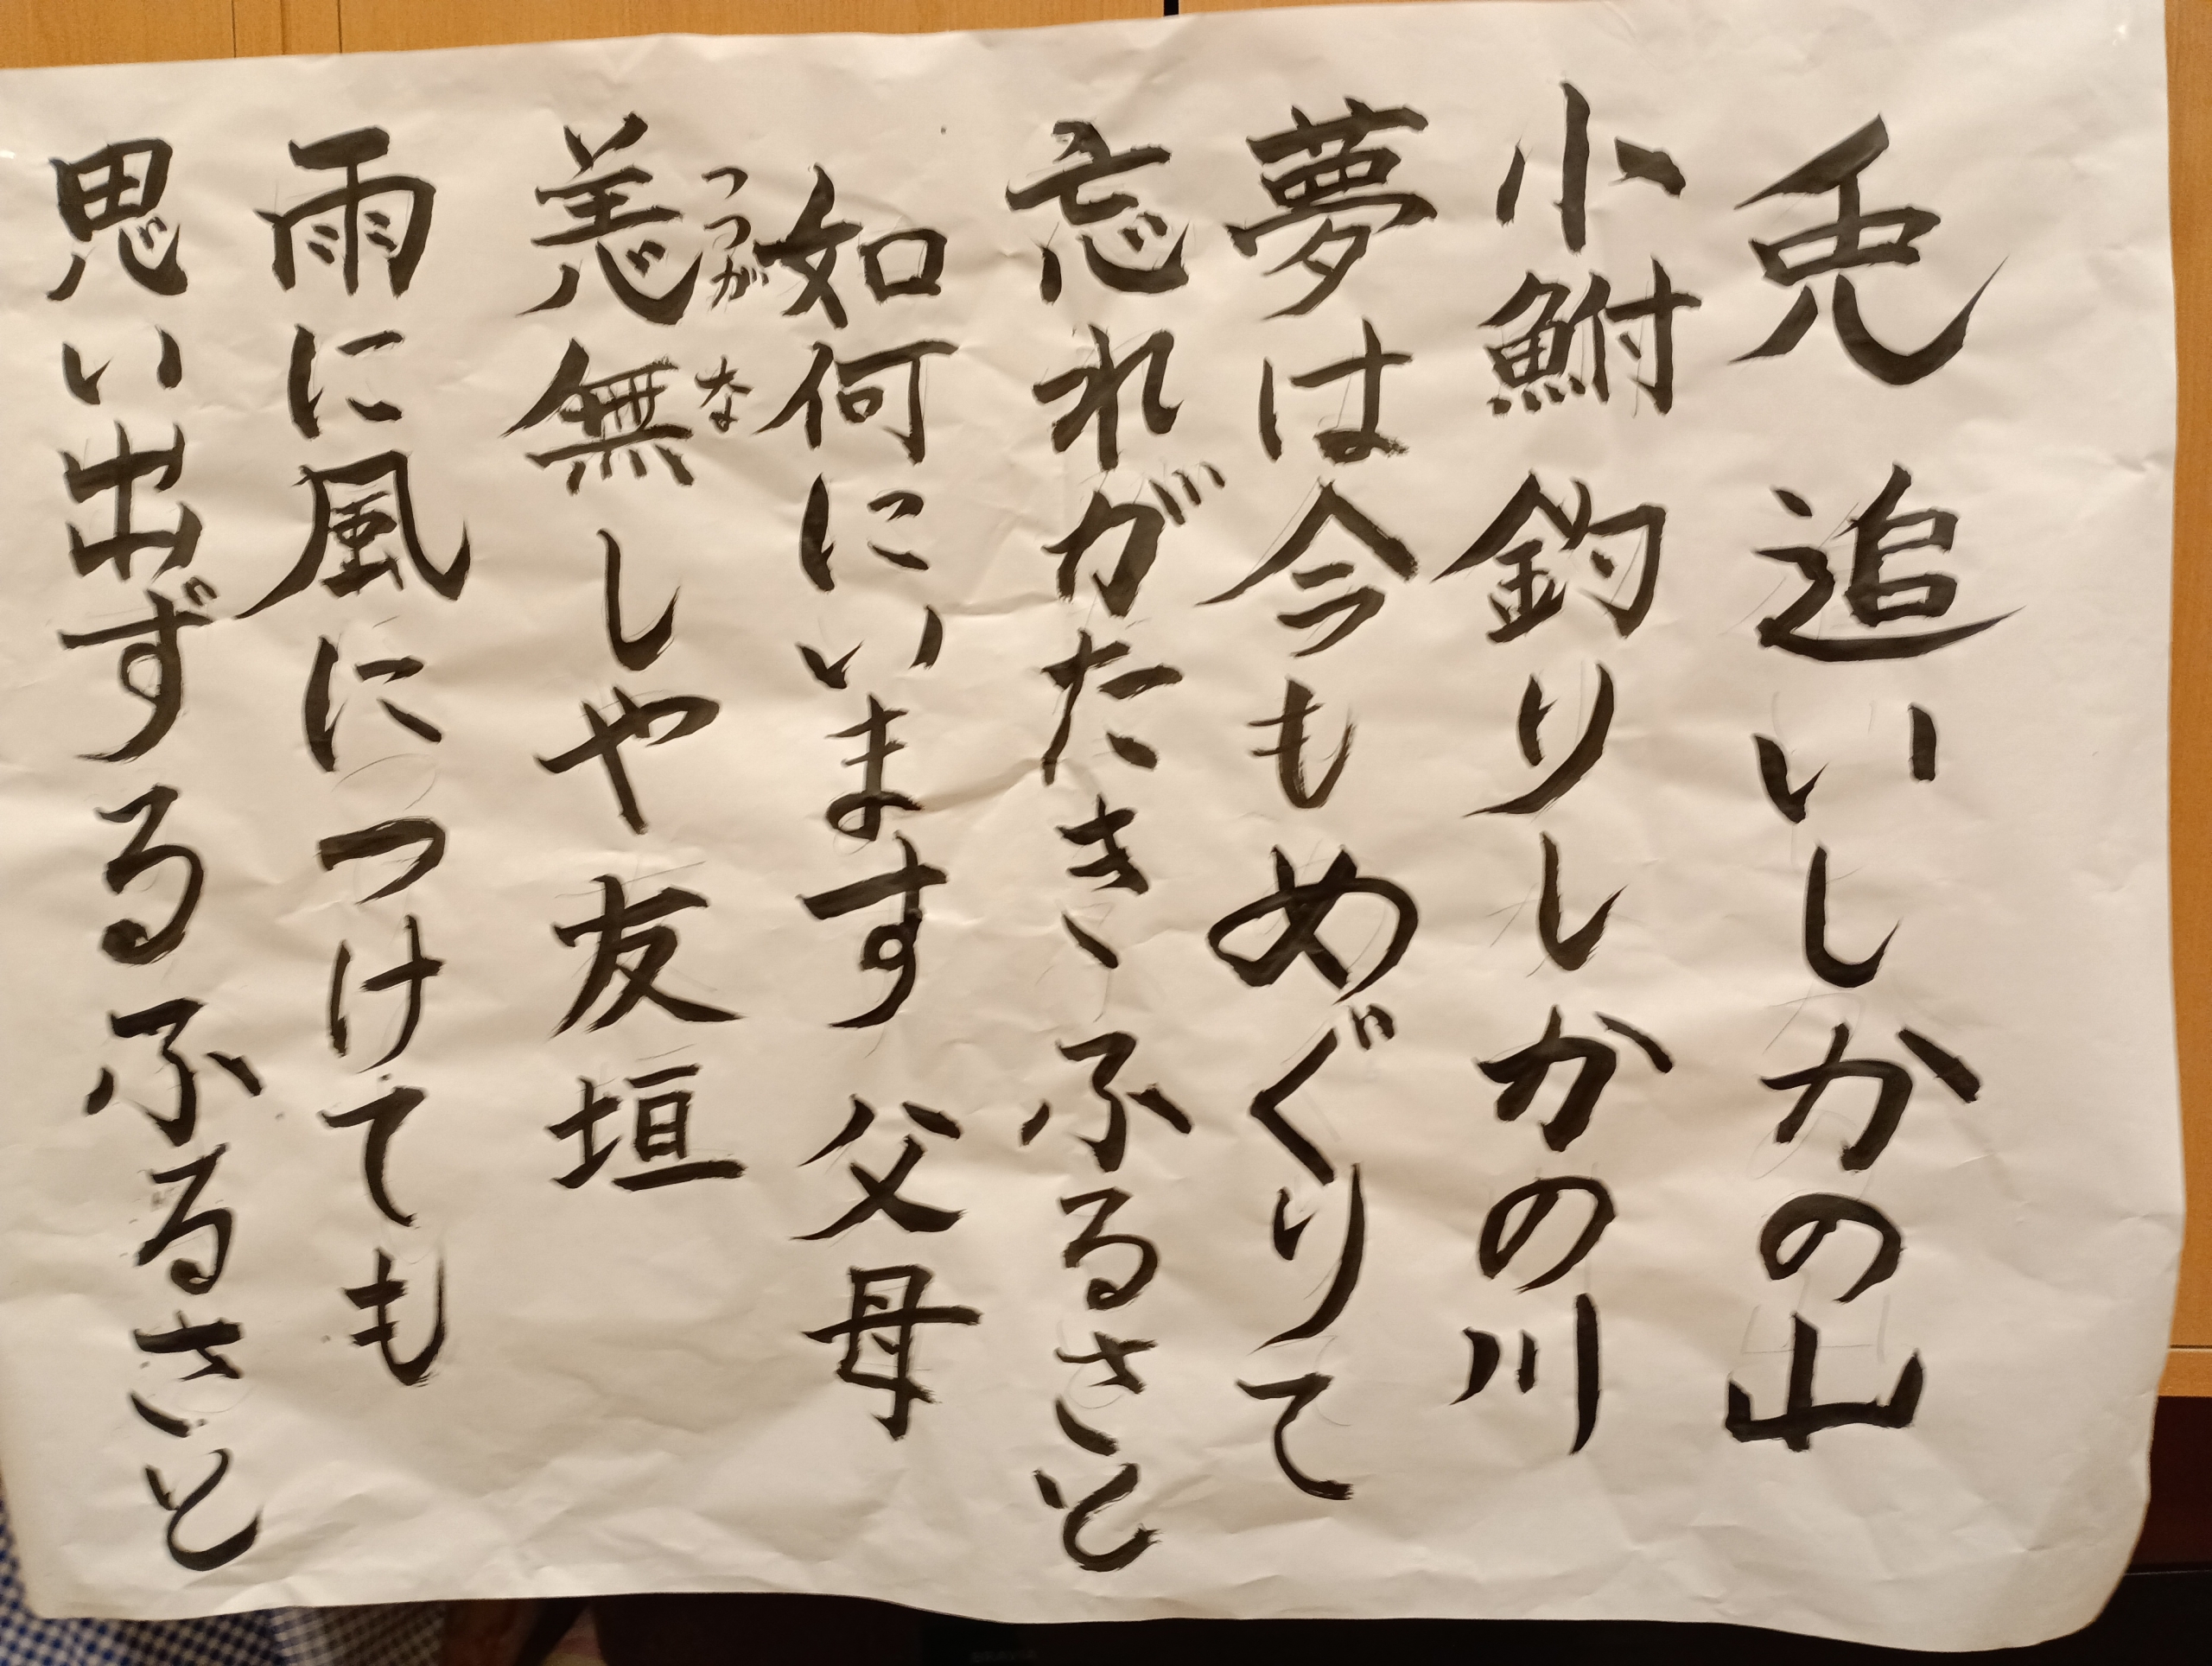 兎追いしかの山
小鮒釣りしかの川
夢は今もめぐりて
忘れがたきふるさと
如何にいます父母
つつがな
恙無しや友垣
雨に風につけても
思い出ずるふるさと